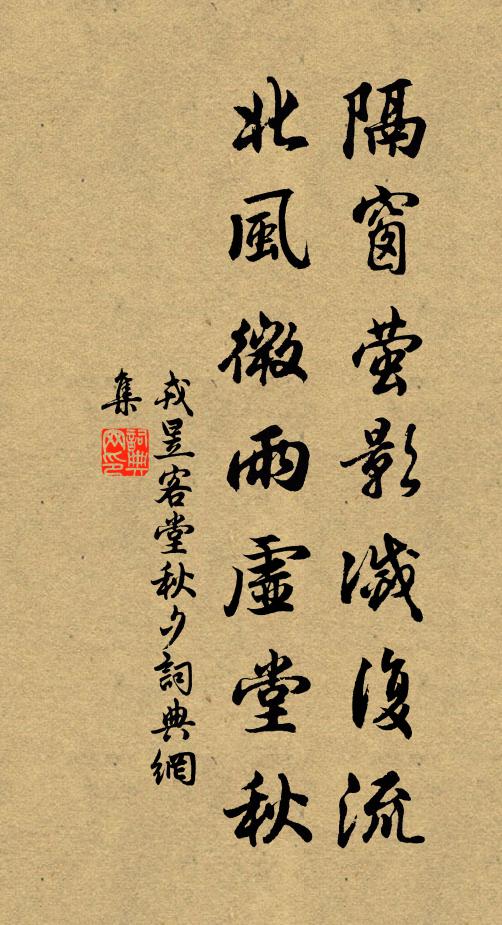 隔窗螢影滅復流
北風微雨虛堂秋
戎昱客堂秋夕詞典網
集
詞典
网印